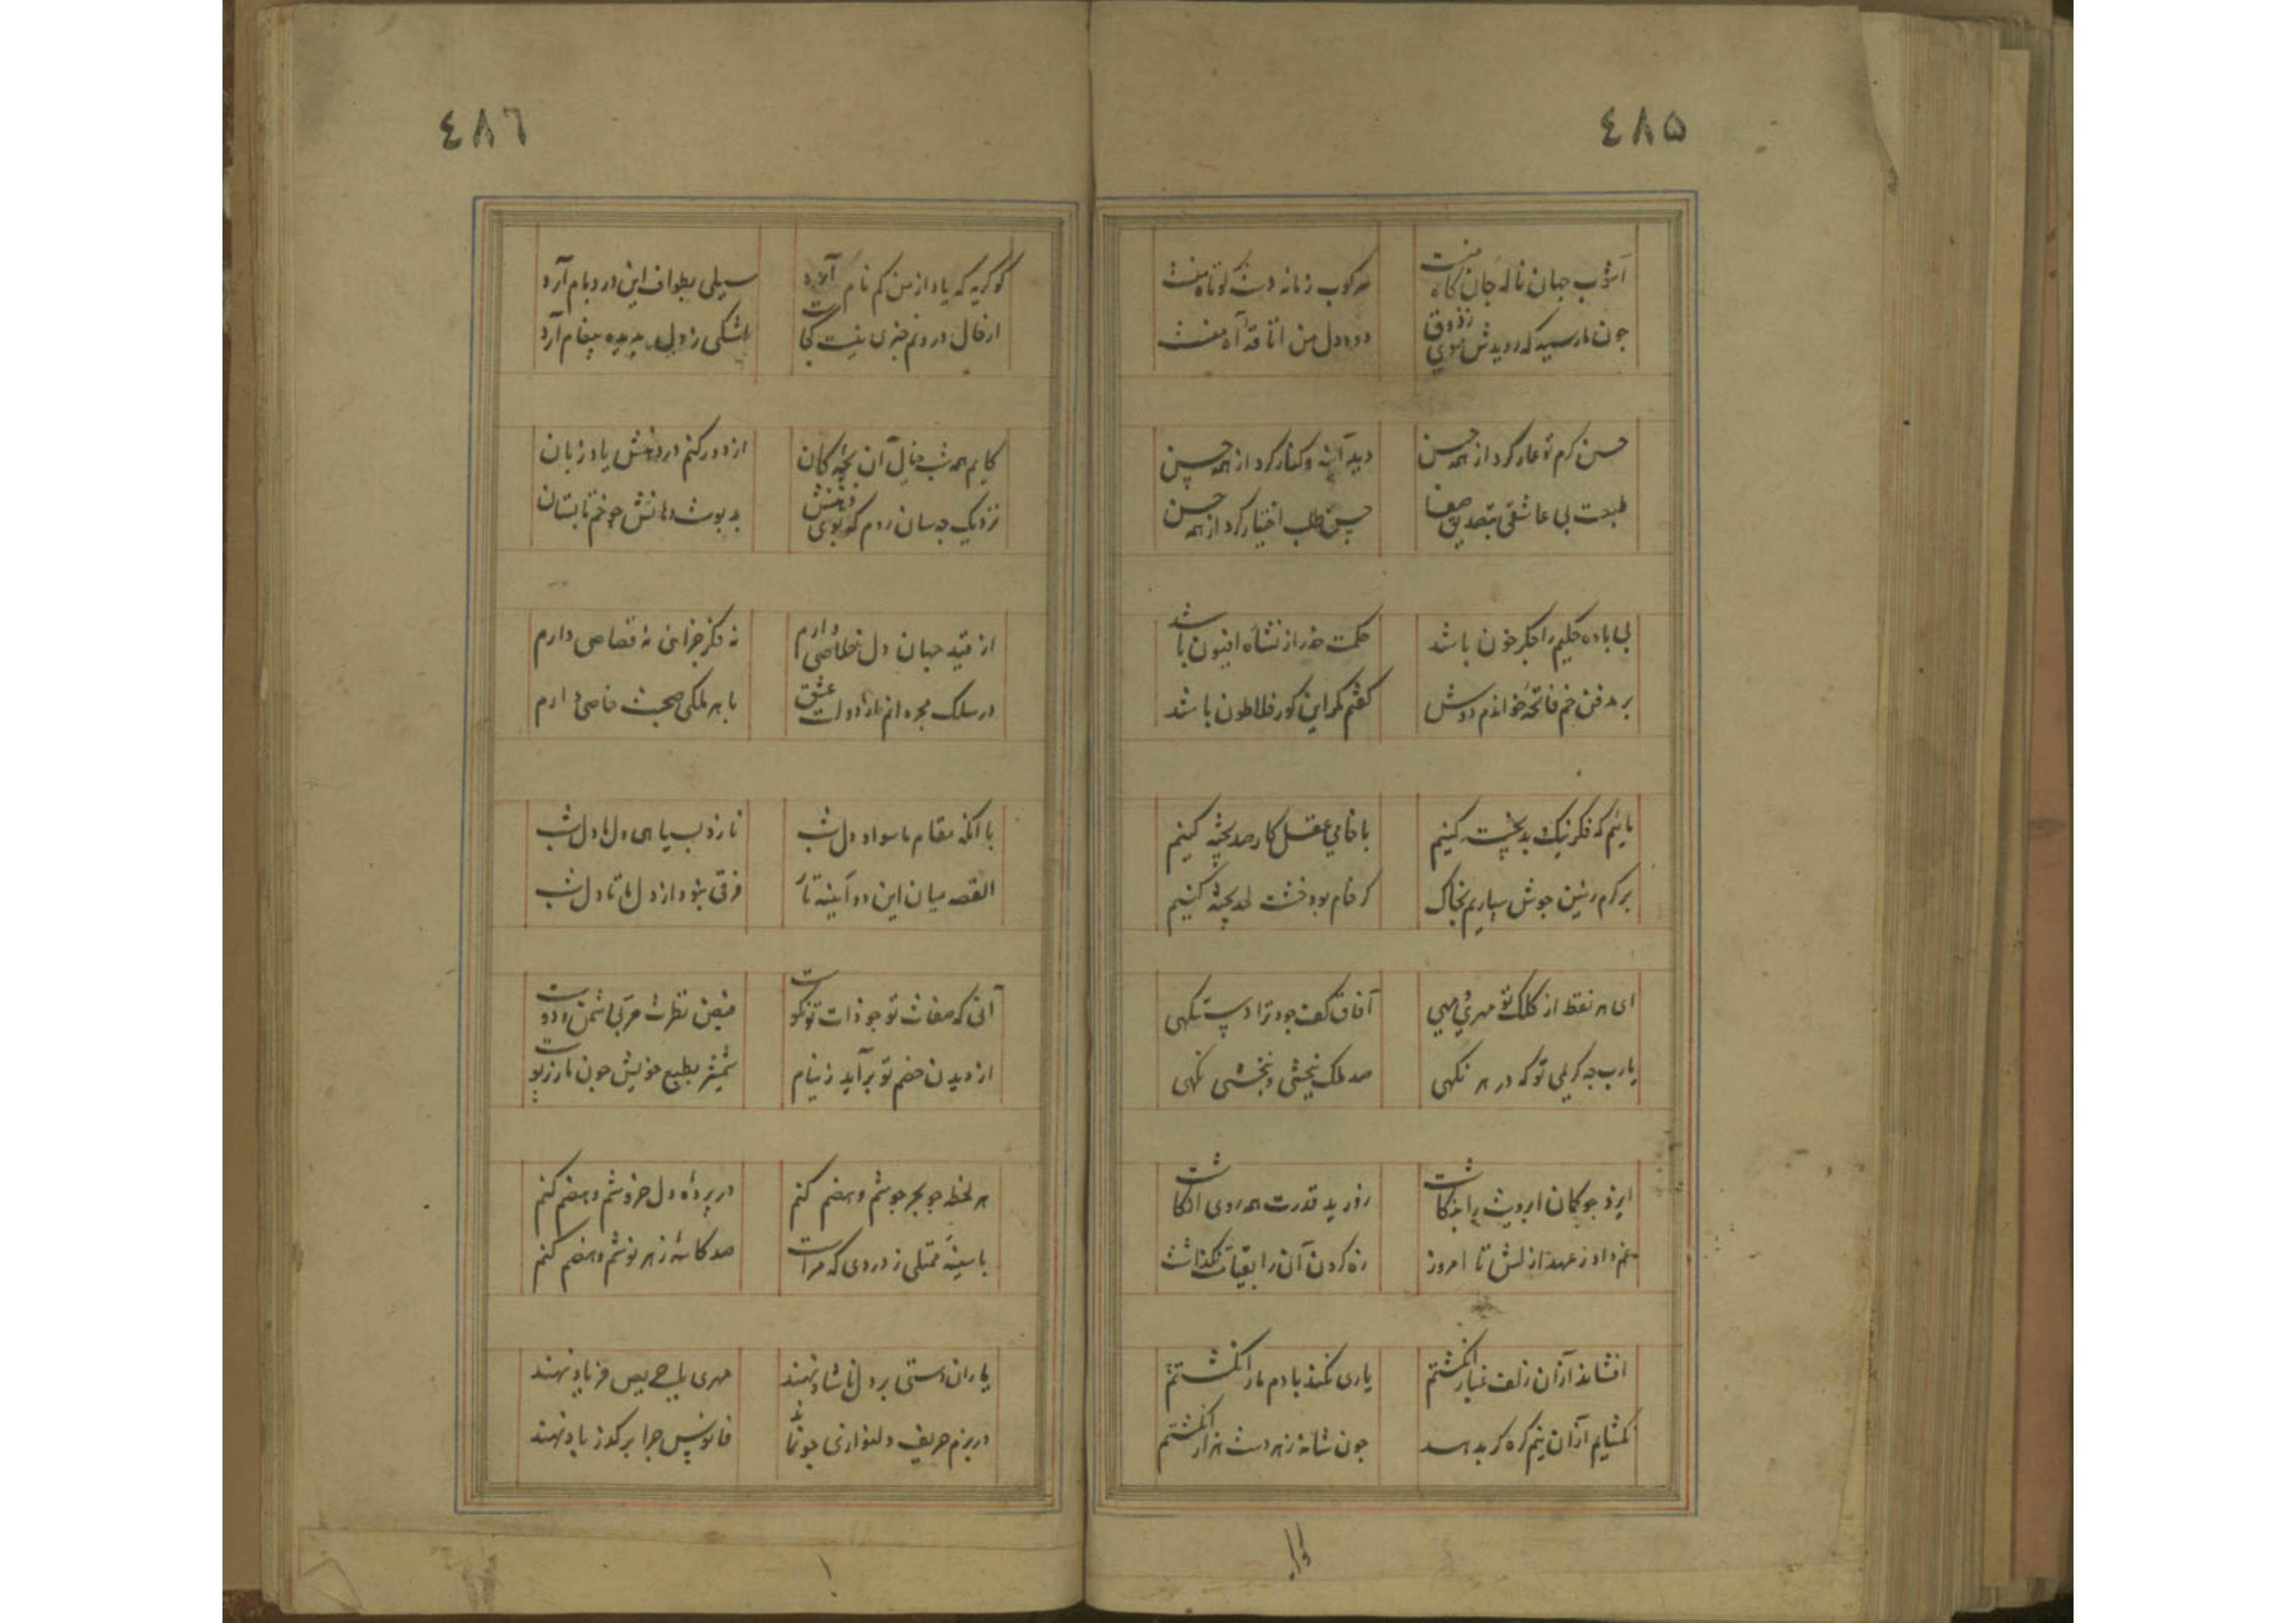 ٤٨۵
آشوب جهان ناله جان کاه منست
سرکوب زمانه دست کوتاه منست
چون مار سیه که رویدش موی ز ذوق
دود دل من اتاقه آه منست
حسن کرم تو عار کرد از همه حسن
دید آینه و کنار کرد از همه حسن
طبعت بی عاشقی بتصدیق صفا
حسن طلب اختیار کرد از همه حسن
بی باده حکیم را جکر خون باشد
حکمت حذر از نشأه افیون باشد
بر مدفن خم فاتحه خواندم دوش
کفتم مکر این کور فلاطون باشد
مائیم که فکر نیک بد پخت کنیم
با خامی عقل کار صد پخته کنیم
بر کرم زمین جوش سپاریم بخاک
کر خام بود خشت لحد پخته کنیم
ای هر نقط از کلک تو مهری و مهی
آفاق کف جود ترا دست نکهی
یارب چه کریمی تو که در هر نکهی
صد ملک ببخشی و نبخشی نکهی
ایزد چو کمان ابرویت را بنکاشت
زور ید قدرت همه روی او کاشت
خم داد ز عهد ازلش تا امروز
زه کردن آن را بقیامت نکذاشت
افشاند از آن زلف غبار انکشتم
یاری نکند با دم مار انکشتم
نکشایم از آن نیم کره کر بدهند
چون شانه ز هر دست هزار انکشتم
٤٨٦
کو کریه که یاد از من کم نام آرد
سیلی بطواف این در و بام آرد
از حال درونم خبری نیست کجاست
اشکی ز دل بدیده پیغام آرد
کایم همه شب خیال آن بچه کان
از دور کنم در دهنش یاد زبان
نزدیک چه سان روم که بوی دهنش
بد بوست دهانش چو خم تابستان
از قید جهان دل خلاصی دارم
نه فکر جزا نی نه قصاصی دارم
در سلک مجردانم از دولت عشق
با هر ملکی صحبت خاصی دارم
با آنکه مقام ما سواد دل شب
نازد بسیاهی دل ما دل شب
القصه میان این دو آیینه تار
فرقی نبود از دل ما تا دل شب
آنی که صفات تو چو ذات تو نکوست
فیض نظرت مربی دشمن و دوست
از دیدن خصم تو برآید ز نیام
شمشیر بطبع خویش چون مار ز پوست
هر لحظه چو بحر جوشم و هضم کنم
در پردهٔ دل خروشم و هضم کنم
با سینهٔ ممتلی ز دردی که مراست
صد کاسهٔ زهر نوشم و هضم کنم
یاران دستی بر دل ناشاد نهند
مهری بلب حریص فریاد نهند
در بزم حریف دلنوازی چو نماند
فانوس چرا بر کذر باد نهند